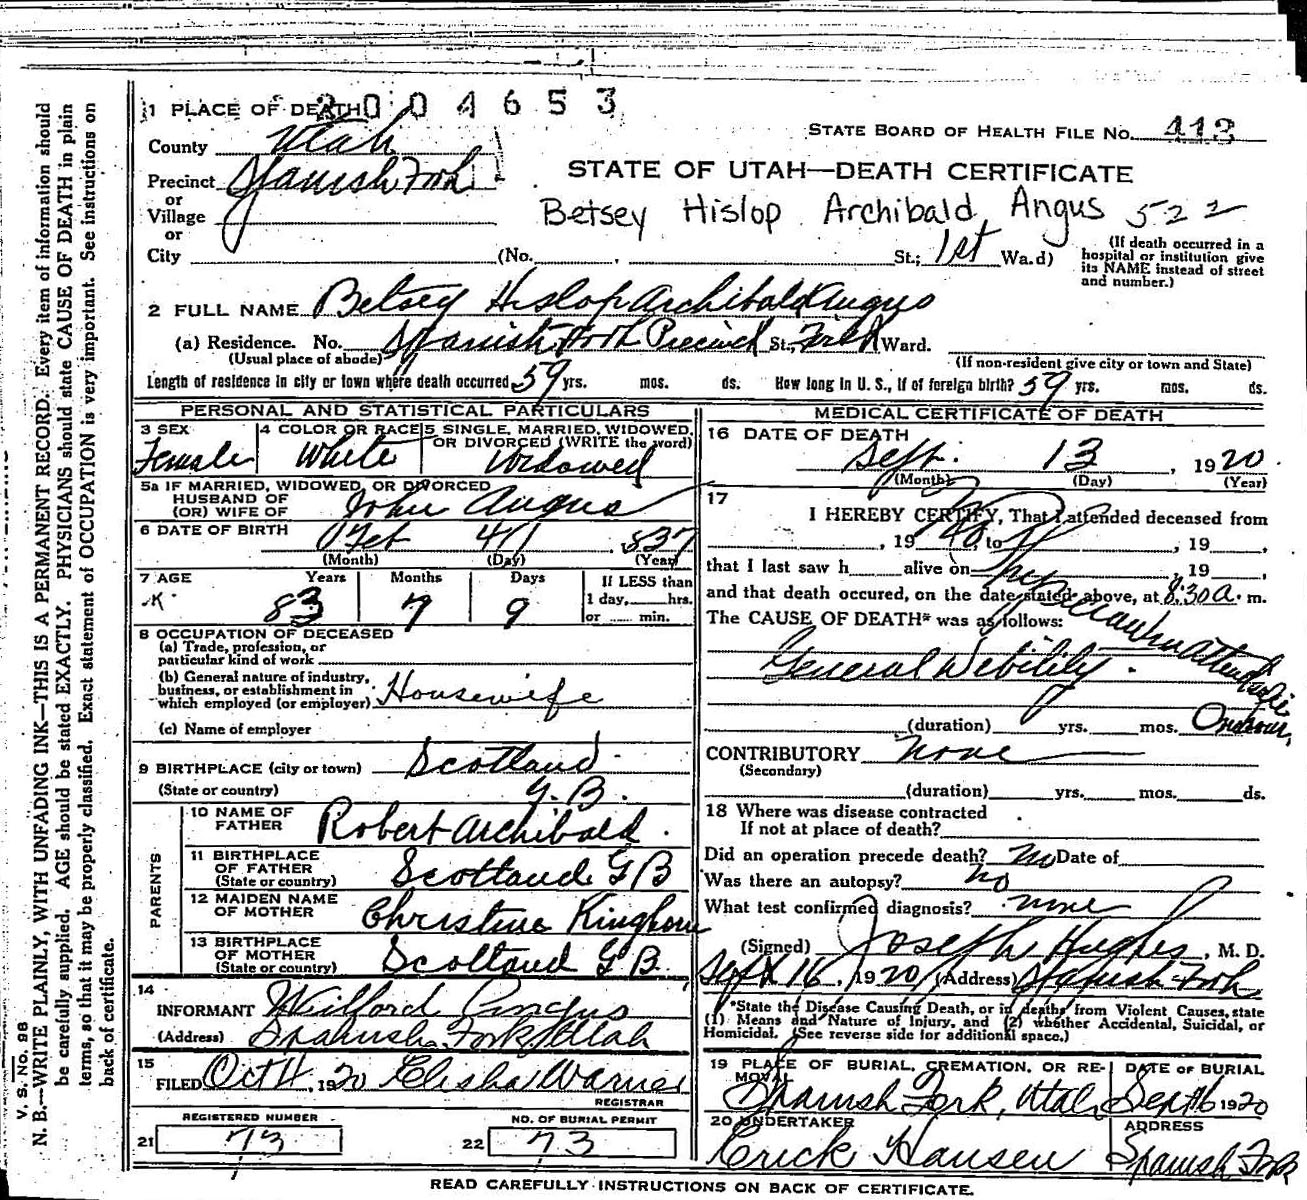 2004653
1 PLACE OF DEATH
STATE BOARD OF HEALTH FILE No. 413
County Utah
Precinct Spanish Fork
or
Village
or
City (No. St.; 1st Ward)
STATE OF UTAH—DEATH CERTIFICATE
Betsey Hislop Archibald Angus 522
(If death occurred in a
hospital or institution give
its NAME instead of street
and number.)
2 FULL NAME Betsey Hislop Archibald Angus
(a) Residence. No. Spanish Fork Precinct St., First Ward.
(Usual place of abode)
(If non-resident give city or town and State)
Length of residence in city or town where death occurred 59 yrs. mos. ds. How long in U. S., if of foreign birth? 59 yrs. mos. ds.
PERSONAL AND STATISTICAL PARTICULARS
3 SEX
Female
4 COLOR OR RACE
White
5 SINGLE, MARRIED, WIDOWED,
OR DIVORCED (WRITE the word)
Widowed
5a IF MARRIED, WIDOWED, OR DIVORCED
HUSBAND OF
(OR) WIFE OF John Angus
6 DATE OF BIRTH
Feb 4 1837
(Month) (Day) (Year)
7 AGE Years Months Days
83 7 9
If LESS than
1 day, hrs.
or min.
8 OCCUPATION OF DECEASED
(a) Trade, profession, or
particular kind of work
(b) General nature of industry,
business, or establishment in
which employed (or employer) Housewife
(c) Name of employer
9 BIRTHPLACE (city or town) Scotland
(State or country) G. B.
PARENTS
10 NAME OF
FATHER Robert Archibald
11 BIRTHPLACE
OF FATHER
(State or country) Scotland G B
12 MAIDEN NAME
OF MOTHER Christine Kinghorn
13 BIRTHPLACE
OF MOTHER
(State or country) Scotland G B
14
INFORMANT Wilford Angus
(Address) Spanish Fork Utah
15
FILED Oct 4, 1920 Elisha Warner
REGISTRAR
REGISTERED NUMBER
21 73
NO. OF BURIAL PERMIT
22 73
MEDICAL CERTIFICATE OF DEATH
16 DATE OF DEATH
Sept. 13, 1920
(Month) (Day) (Year)
17
I HEREBY CERTIFY, That I attended deceased from
, 19 , to , 19 ,
that I last saw h alive on , 19 ,
and that death occured, on the date stated above, at 8:30 a. m.
The CAUSE OF DEATH* was as follows:
No physician in attendance
General Debility.
(duration) yrs. mos.
CONTRIBUTORY none
(Secondary)
(duration) yrs. mos. ds.
18 Where was disease contracted
If not at place of death?
Did an operation precede death? no Date of
Was there an autopsy? no
What test confirmed diagnosis? none
(Signed) Joseph Hughes, M. D.
Sept 16, 1920 (Address) Spanish Fork
*State the Disease Causing Death, or in deaths from Violent Causes, state
(1) Means and Nature of Injury, and (2) whether Accidental, Suicidal, or
Homicidal. (See reverse side for additional space.)
19 PLACE OF BURIAL, CREMATION, OR RE-
MOVAL
Spanish Fork, Utah
DATE OF BURIAL
Sept 16 1920
20 UNDERTAKER
Erick Hansen
ADDRESS
Spanish Fork
READ CAREFULLY INSTRUCTIONS ON BACK OF CERTIFICATE.
V. S. No. 98
N. B.—WRITE PLAINLY, WITH UNFADING INK—THIS IS A PERMANENT RECORD. Every item of information should
be carefully supplied. AGE should be stated EXACTLY. PHYSICIANS should state CAUSE OF DEATH in plain
terms, so that it may be properly classified. Exact statement of OCCUPATION is very important. See instructions on
back of certificate.